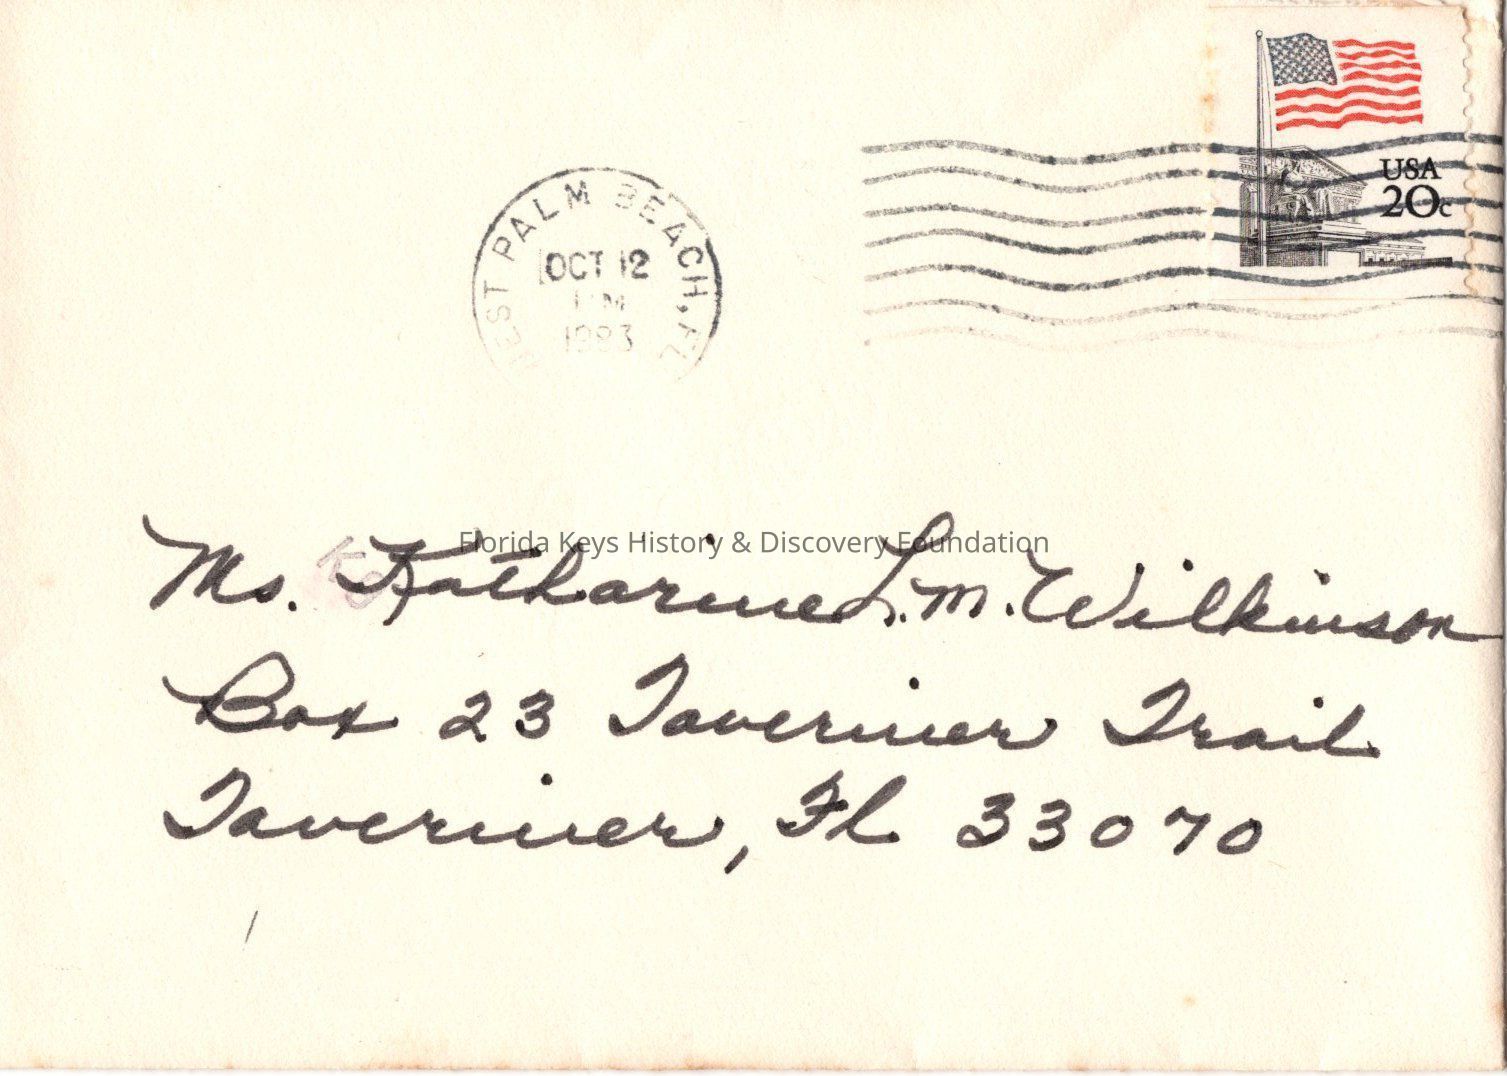 USA
20c
WEST PALM BEACH, FL
OCT 12
PM
1983
Florida Keys History & Discovery Foundation
Ms. Katharine L.M. Wilkinson
Box 23 Tavernier Trail
Tavernier, Fl 33070